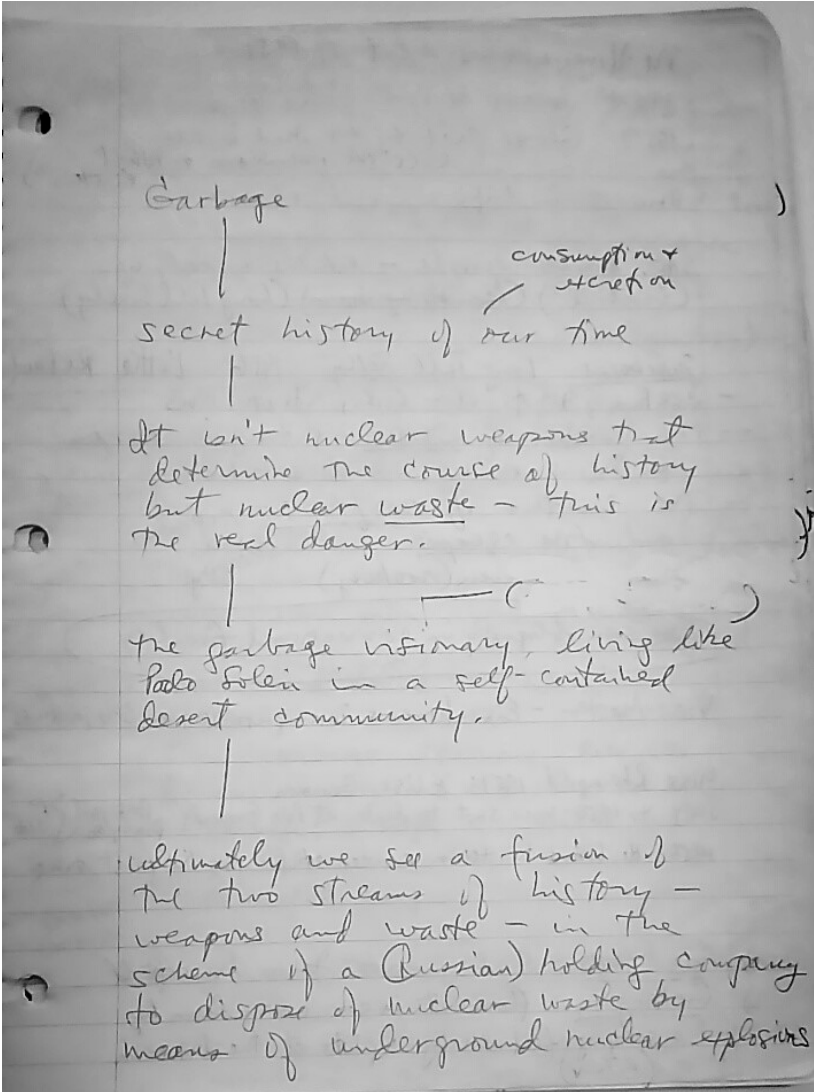 Garbage
consumption +
excretion
secret history of our time
It isn't nuclear weapons that
determine the course of history
but nuclear waste – this is
the real danger.
the garbage visionary, living like
Paolo Soleri in a self-contained
desert community.
ultimately we see a fusion of
the two streams of history –
weapons and waste – in the
scheme of a (Russian) holding company
to dispose of nuclear waste by
means of underground nuclear explosions